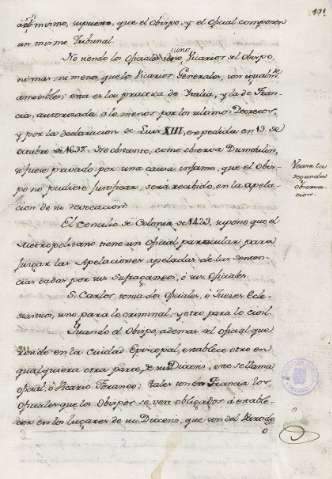 asimismo, supuesto, que el Obispo, y el Oficial componen
un mismo Tribunal.
No siendo los Oficiales sino Vicarios del Obispo,
ni mas ni menos que los Vicarios Generales, son igualmte.
amovibles; esta es la practica de Italia, y la de Fran-
cia, autorizada á lo menos por los ultimos Decretos,
y por la declaracion de Luis XIII, expedida en 19. de
octubre de 1637. No obstante, como observa Dumoulin,
si fuese privado por una causa infame, que el Obis-
po no pudiese justificar, será recibido, en la apela-
cion de su revocacion.
El Concilio de Colonia de 1423, supone que el
Metropolitano tiene un Oficial particular para
juzgar las Apelaciones apeladas de las Senten-
cias dadas por sus Sufraganeos, ó sus Oficiales.
S. Carlos tenia dos Oficiales, ó Jueces Ecle-
siasticos, uno para lo criminal, y otro para lo civil.
Quando el Obispo, ademas del oficial que
reside en la Ciudad Episcopal, establece otro en
qualquiera otra parte de su Diocesis, este se llama
oficial, ó Vicario Foraneo. Tales son en Francia los
Oficiales que los Obispos se ven obligados á estable-
cer en los lugares de su Diocesis, que son del
Vease la
segunda
observa
cion.